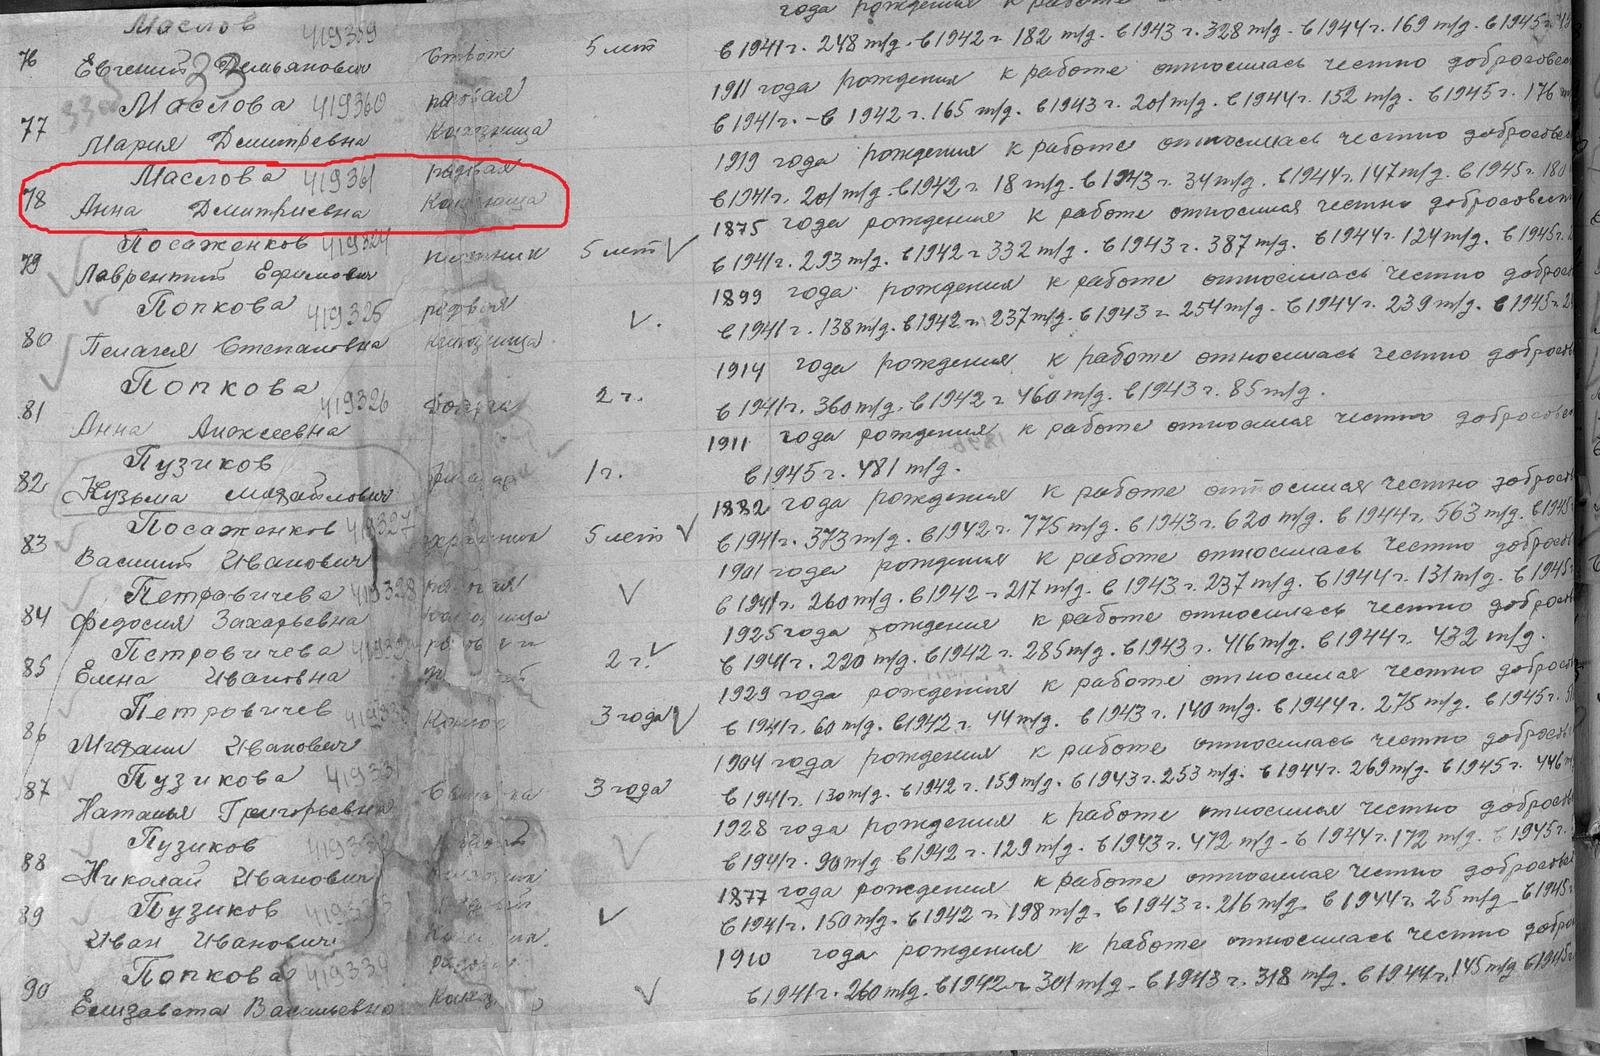 года рождения к работе
Маслов 419359
76 Евгений Демьянович 5 лет в 1941 г. 248 т/д. в 1942 г 182 т/д. в 1943 г. 328 т/д. в 1944 г. 169 т/д. в 1945 г.
33
Маслова 419360 рядовая 1911 года рождения к работе относилась честно добросовес
77 Мария Дмитревна Колхозница в 1941 г. – в 1942 г. 165 т/д. в 1943 г. 201 т/д. в 1944 г. 152 т/д. в 1945 г. 176
Маслова 419361 рядовая 1919 года рождения к работе относилась честно добросовес
78 Анна Дмитриевна Колхозница в 1941 г. 201 т/д. в 1942 г. 18 т/д. в 1943 г. 34 т/д. в 1944 г. 147 т/д. в 1945 г. 180
Посаженков 419324 1875 года рождения к работе относился честно добросовест
79 Лаврентий Ефимович 5 лет в 1941 г. 293 т/д. в 1942 г 332 т/д. в 1943 г. 387 т/д. в 1944 г. 124 т/д. в 1945 г.
Попкова 419325 рядовая 1899 года рождения к работе относилась честно добросов
80 Пелагея Степановна колхозница в 1941 г. 138 т/д. в 1942 г. 237 т/д. в 1943 г. 254 т/д. в 1944 г. 239 т/д. в 1945 г.
Попкова 419326 1914 года рождения к работе относилась честно добросов
81 Анна Алексеевна 2 г. в 1941 г. 360 т/д. в 1942 г 460 т/д. в 1943 г. 85 т/д.
Пузиков 1911 года рождения к работе относился честно добросовес
82 Кузьма Михайлович 1 г. в 1945 г. 481 т/д.
Посаженков 419327 1882 года рождения к работе относился честно добросов
83 Василий Иванович 5 лет в 1941 г. 373 т/д. в 1942 г. 775 т/д. в 1943 г. 620 т/д. в 1944 г. 563 т/д. в 1945
Петравичева 419328 рядовая 1901 года рождения к работе относилась честно добросов
84 Федосия Захарьевна колхозница в 1941 г. 260 т/д. в 1942 – 217 т/д. в 1943 г. 237 т/д. в 1944 г. 131 т/д. в 1945
Петровичева 1925 года рождения к работе относилась честно добросов
85 Елена Ивановна 2 г. в 1941 г. 220 т/д. в 1942 г. 285 т/д. в 1943 г. 416 т/д. в 1944 г. 432 т/д.
Петровичев 1929 года рождения к работе относился честно добросов
86 Михаил Иванович 3 года в 1941 г. 60 т/д. в 1942 г. 44 т/д. в 1943 г. 140 т/д. в 1944 г. 275 т/д. в 1945 г.
Пузикова 419331 1904 года рождения к работе относилась честно добросов
87 Наталья Григорьевна 3 года в 1941 г. 130 т/д. в 1942 г. 159 т/д. в 1943 г. 253 т/д. в 1944 г. 269 т/д. в 1945 г. 446
Пузиков 1928 года рождения к работе относился честно добросов
88 Николай Иванович в 1941 г. 90 т/д. в 1942 г. 129 т/д. в 1943 г. 472 т/д. в 1944 г. 172 т/д. в 1945 г.
Пузиков 1877 года рождения к работе относился честно добросовес
89 Иван Иванович в 1941 г. 150 т/д. в 1942 г. 198 т/д. в 1943 г. 216 т/д. в 1944 г. 25 т/д. в 1945
Попкова 419334 1910 года рождения к работе относилась честно добро
90 Елизавета Васильевна в 1941 г. 260 т/д. в 1942 г 301 т/д. в 1943 г. 318 т/д. в 1944 г. 145 т/д. в 1945